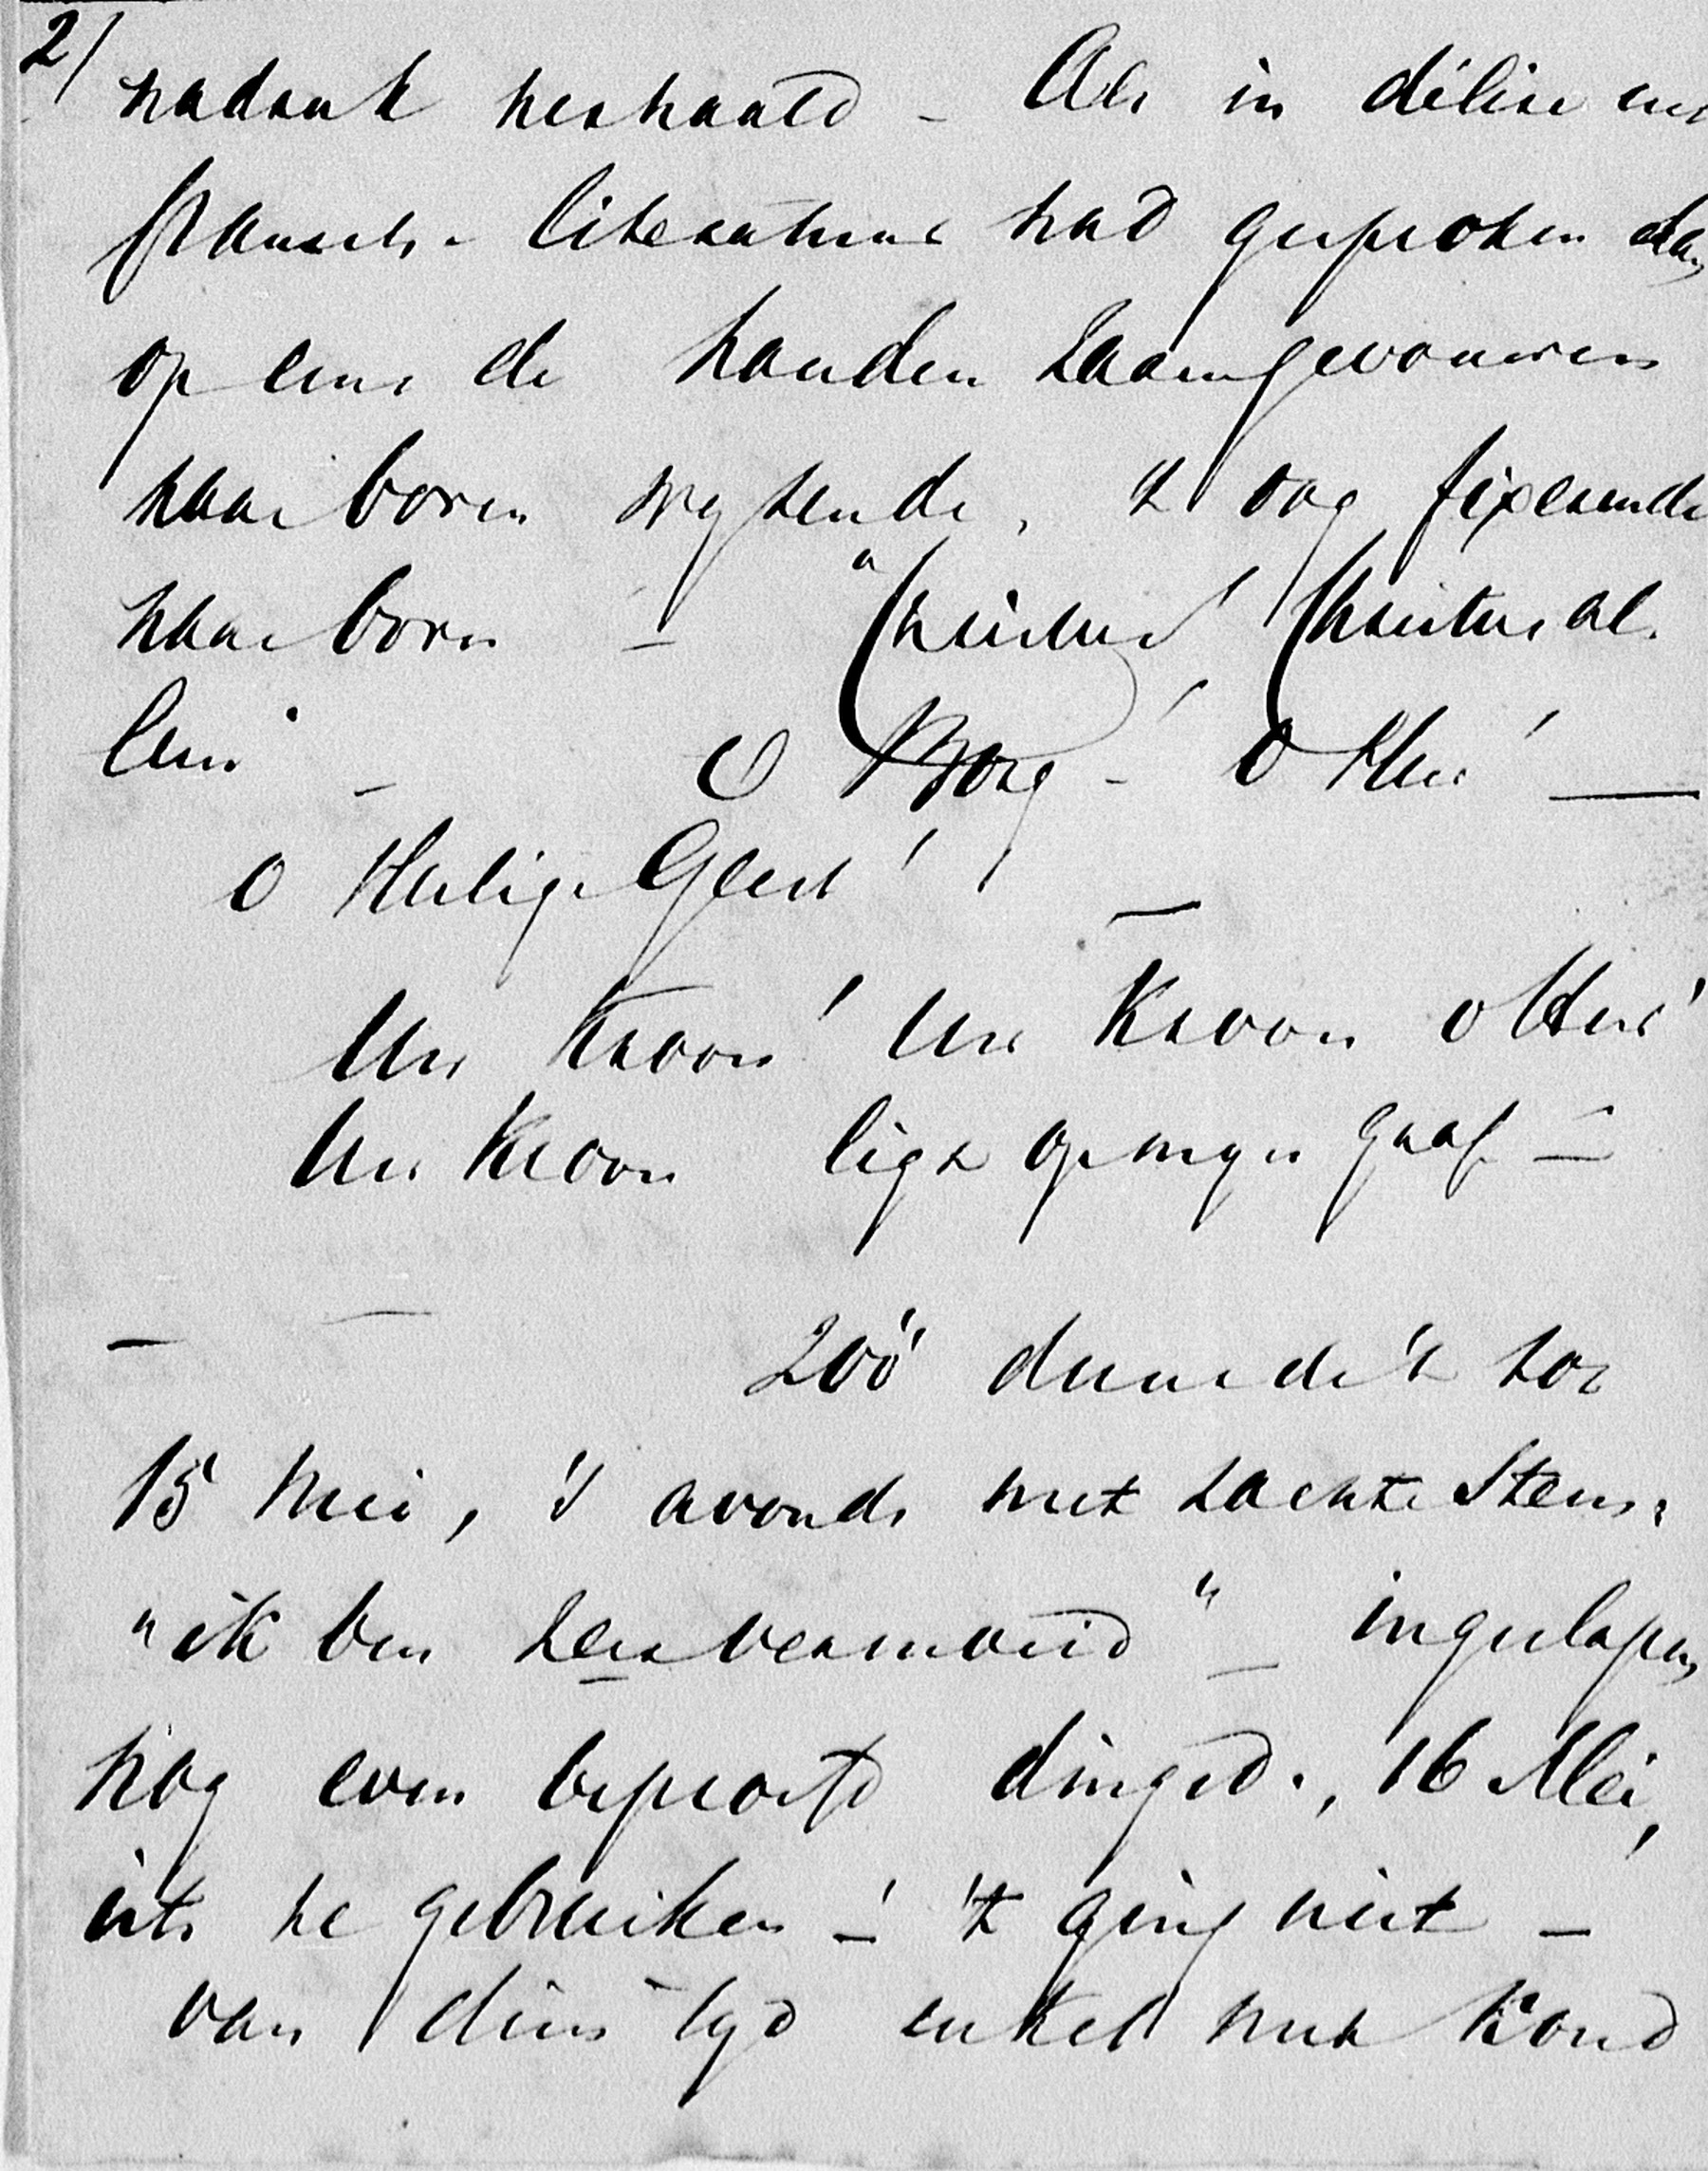 2/
nadruk herhaald - Als in délire over
fransche literatuur had gesproken dan
op eens de handen zaamgevouwen
naar boven wyzende, 't oog fixerende
naar boven - "Christus! Christus al-
leen! - O Borg -! O Heer! -
O Heilige Geest! -
Uw Kroon! Uw Kroon o Heer!
Uw Kroon ligt op myn graf -
- - Zóó duurde 't tot
15 Mei, 's avonds met zachte stem:
"ik ben zeer vermoeid" - ingeslapen,
nog even beproefd dinged., 16 Mei,
iets te gebruiken -! 't ging niet -
van dien tyd enkel met koud